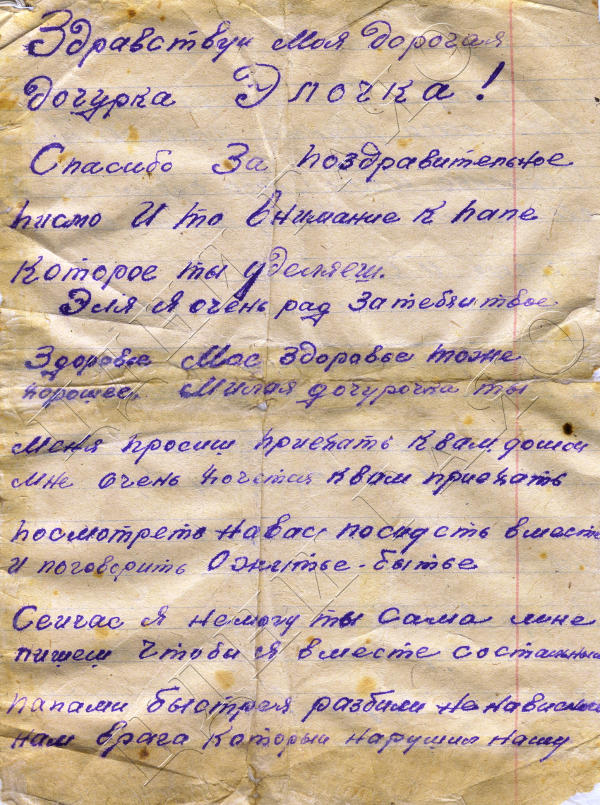 Здравствуи Моя Дорогая
Дочурка Элочка!
Спасибо За поздравительное
писмо И то Внимание к папе
которое ты уделяеш.
Эля Я очень рад За тебя и твое
Здоровье Мое здоровье тоже
хорошее. Милая дочурочка ты
меня просиш приехать к вам домои
мне очень хочется к вам приехать
посмотреть на вас посидеть вместе
и поговорить О житье-бытье
Сеичас я немогу ты сама мне
пишеш Чтобы Я вместе состальными
папами быстрея разбили ненависного
нам врага которыи нарушил нашу